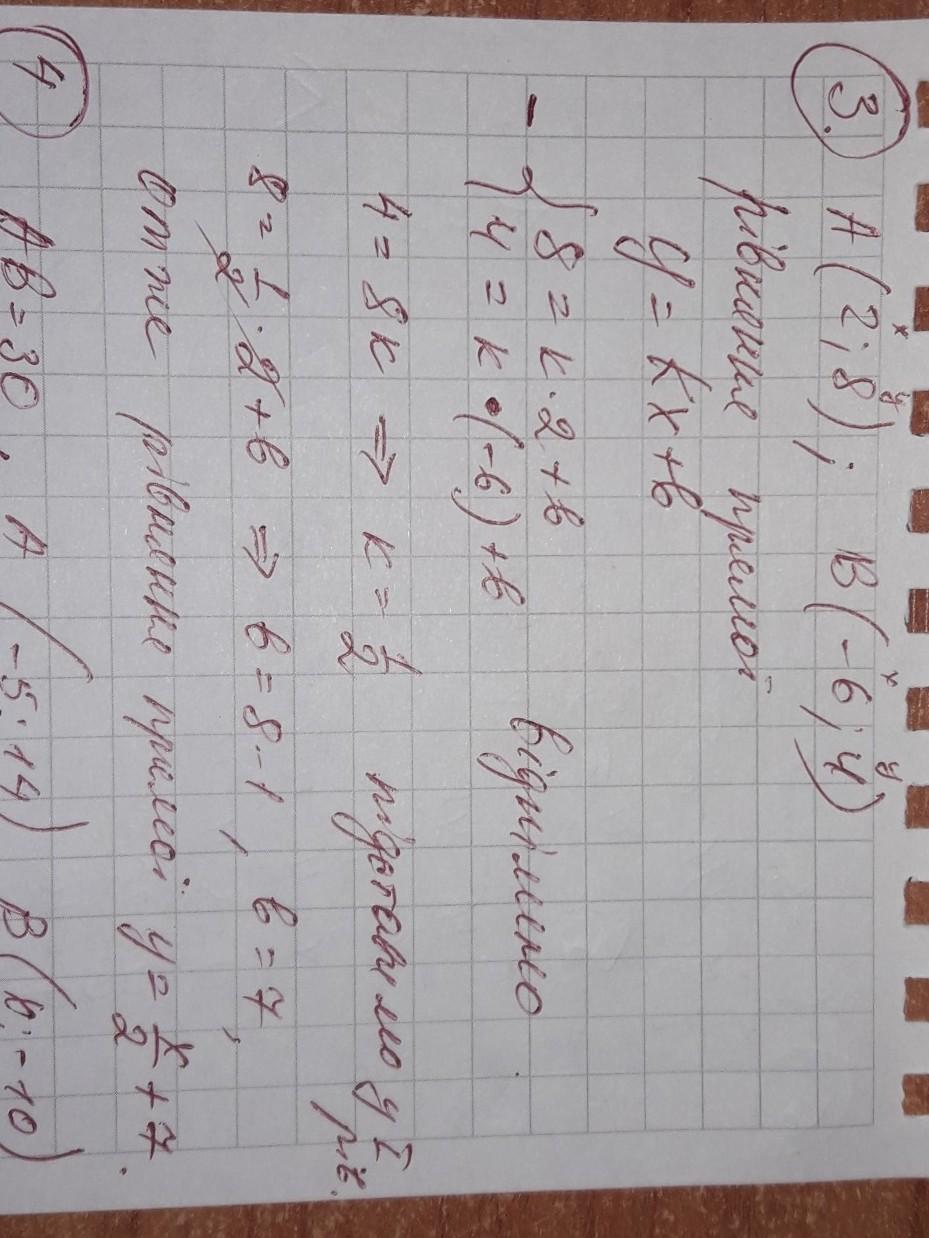 3. A(2; 8); B(-6; 4)
x y x y
рівняння прямої
y = kx + b
- { 8 = k·2 + b
4 = k·(-6) + b віднімемо
4 = 8k ⇒ k = 1/2 підставимо у I рів.
8 = 1/2·2 + b ⇒ b = 8 - 1, b = 7,
отже рівняння прямої y = x/2 + 7.
4 AB = 30, A(-5; 14) B(b; -10)